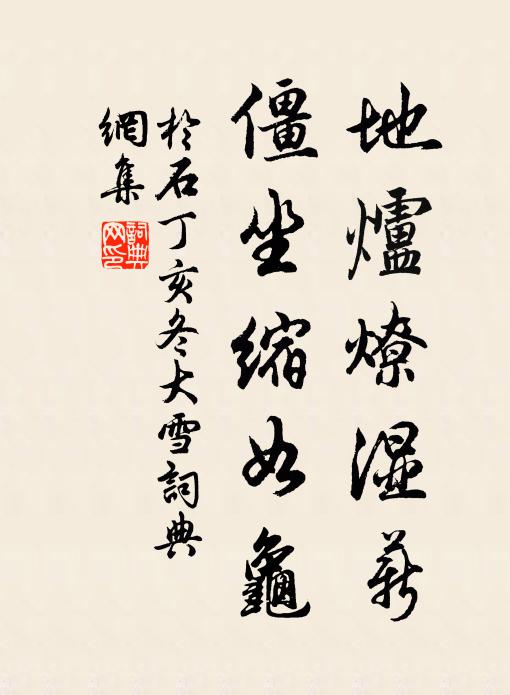 地爐燎濕薪
僵坐縮如龜
於石丁亥冬大雪詞典
網集
詞典
网印